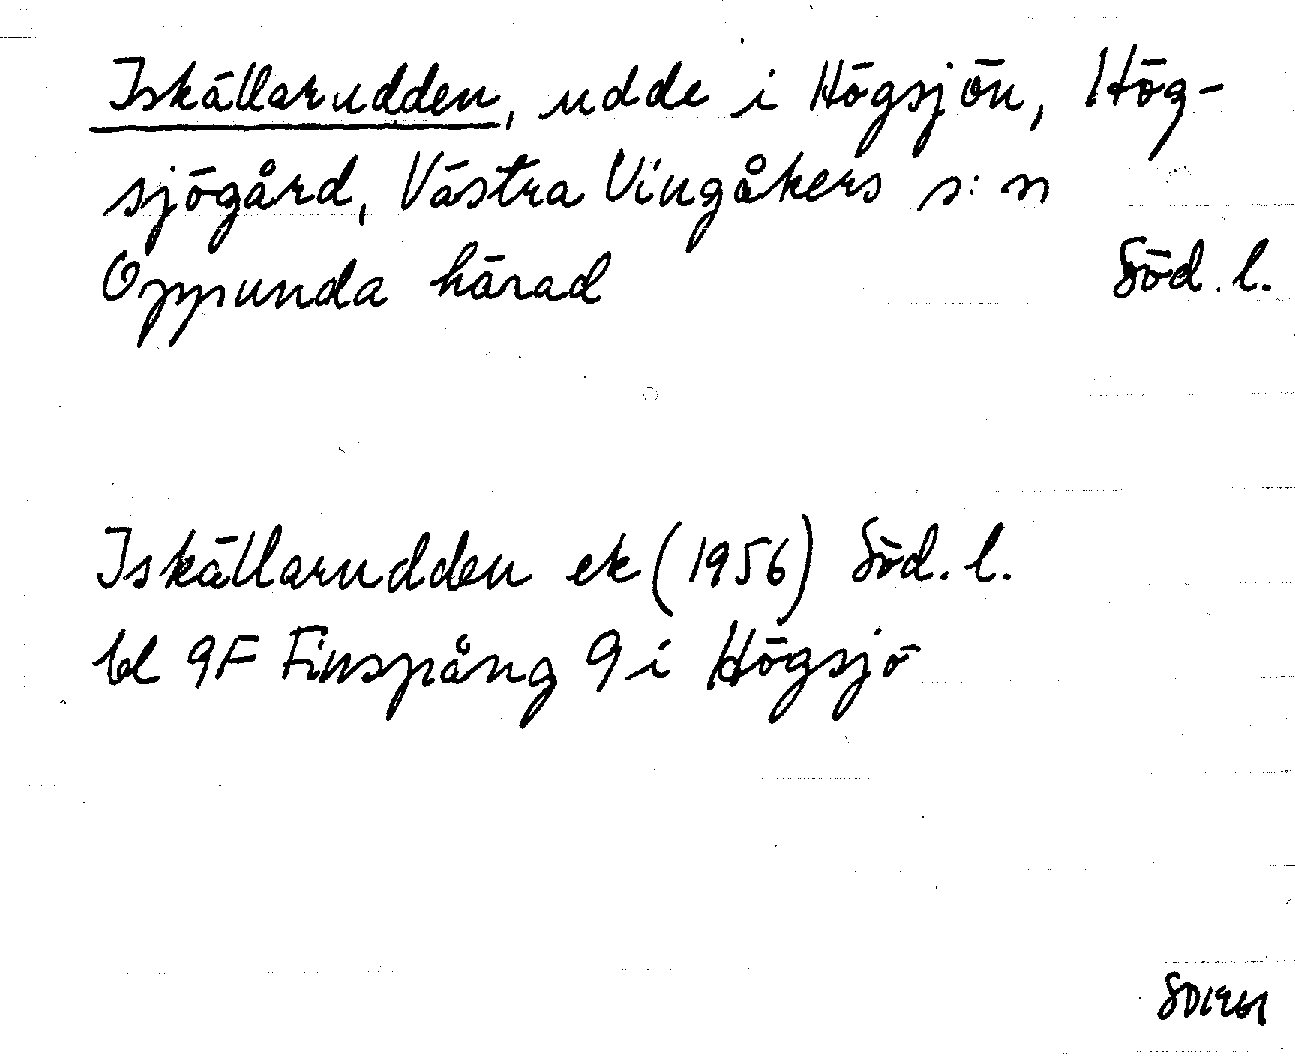 Iskällarudden, udde i Högsjön, Hög-
sjögård, Västra Vingåkers s:n
Oppunda härad Söd. l.
Iskällarudden ek (1956) Söd. l.
bl 9F Finspång 9 i Högsjö